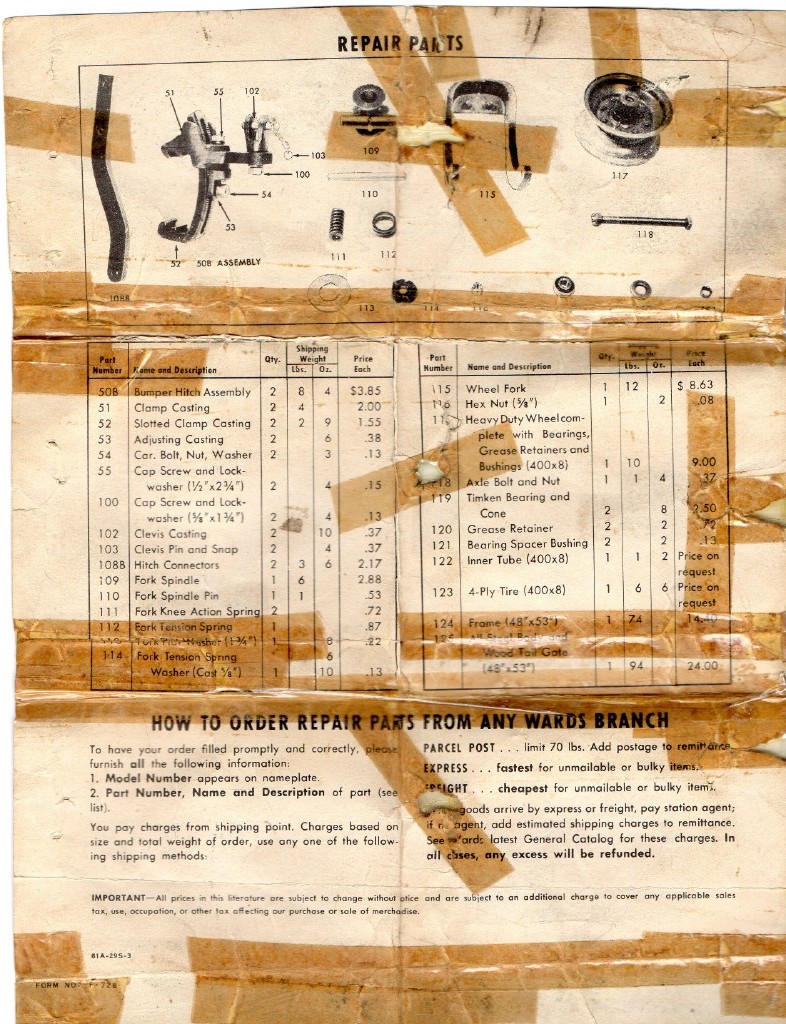 REPAIR PARTS
51
55
102
103
100
54
53
52 50B ASSEMBLY
108B
109
110
111
112
113
114
115
116
117
118
Part Number Name and Description Qty. Shipping Weight Lbs. Oz. Price Each
50B Bumper Hitch Assembly 2 8 4 $3.85
51 Clamp Casting 2 4 2.00
52 Slotted Clamp Casting 2 2 9 1.55
53 Adjusting Casting 2 6 .38
54 Car. Bolt, Nut, Washer 2 3 .13
55 Cap Screw and Lock-
washer (½"x2¾") 2 4 .15
100 Cap Screw and Lock-
washer (⅝"x1¾") 2 4 .13
102 Clevis Casting 2 10 .37
103 Clevis Pin and Snap 2 4 .37
108B Hitch Connectors 2 3 6 2.17
109 Fork Spindle 1 6 2.88
110 Fork Spindle Pin 1 1 .53
111 Fork Knee Action Spring 2 .72
112 Fork Tension Spring 1 .87
113 Fork Pivot Washer (1¾") 1 8 .22
114 Fork Tension Spring 6
Washer (Cast ⅝") 1 10 .13
Part Number Name and Description Qty. Shipping Weight Lbs. Oz. Price Each
115 Wheel Fork 1 12 $ 8.63
116 Hex Nut (⅝") 1 2 .08
Heavy Duty Wheel com-
plete with Bearings,
Grease Retainers and
Bushings (400x8) 1 10 9.00
118 Axle Bolt and Nut 1 1 4 .37
119 Timken Bearing and
Cone 2 8 2.50
120 Grease Retainer 2 2 .72
121 Bearing Spacer Bushing 2 2 .13
122 Inner Tube (400x8) 1 1 2 Price on
request
123 4-Ply Tire (400x8) 1 6 6 Price on
request
124 Frame (48"x53") 1 74 14.40
125 All Steel Body and
Wood Tail Gate
(48"x53") 1 94 24.00
HOW TO ORDER REPAIR PARTS FROM ANY WARDS BRANCH
To have your order filled promptly and correctly, please
furnish all the following information:
1. Model Number appears on nameplate.
2. Part Number, Name and Description of part (see
list).
You pay charges from shipping point. Charges based on
size and total weight of order, use any one of the follow-
ing shipping methods:
PARCEL POST . . . limit 70 lbs. Add postage to remittance.
EXPRESS . . . fastest for unmailable or bulky items.
FREIGHT . . . cheapest for unmailable or bulky items.
goods arrive by express or freight, pay station agent;
if no agent, add estimated shipping charges to remittance.
See Wards latest General Catalog for these charges. In
all cases, any excess will be refunded.
IMPORTANT—All prices in this literature are subject to change without notice and are subject to an additional charge to cover any applicable sales
tax, use, occupation, or other tax affecting our purchase or sale of merchadise.
81A-295-3
FORM NO. F-728